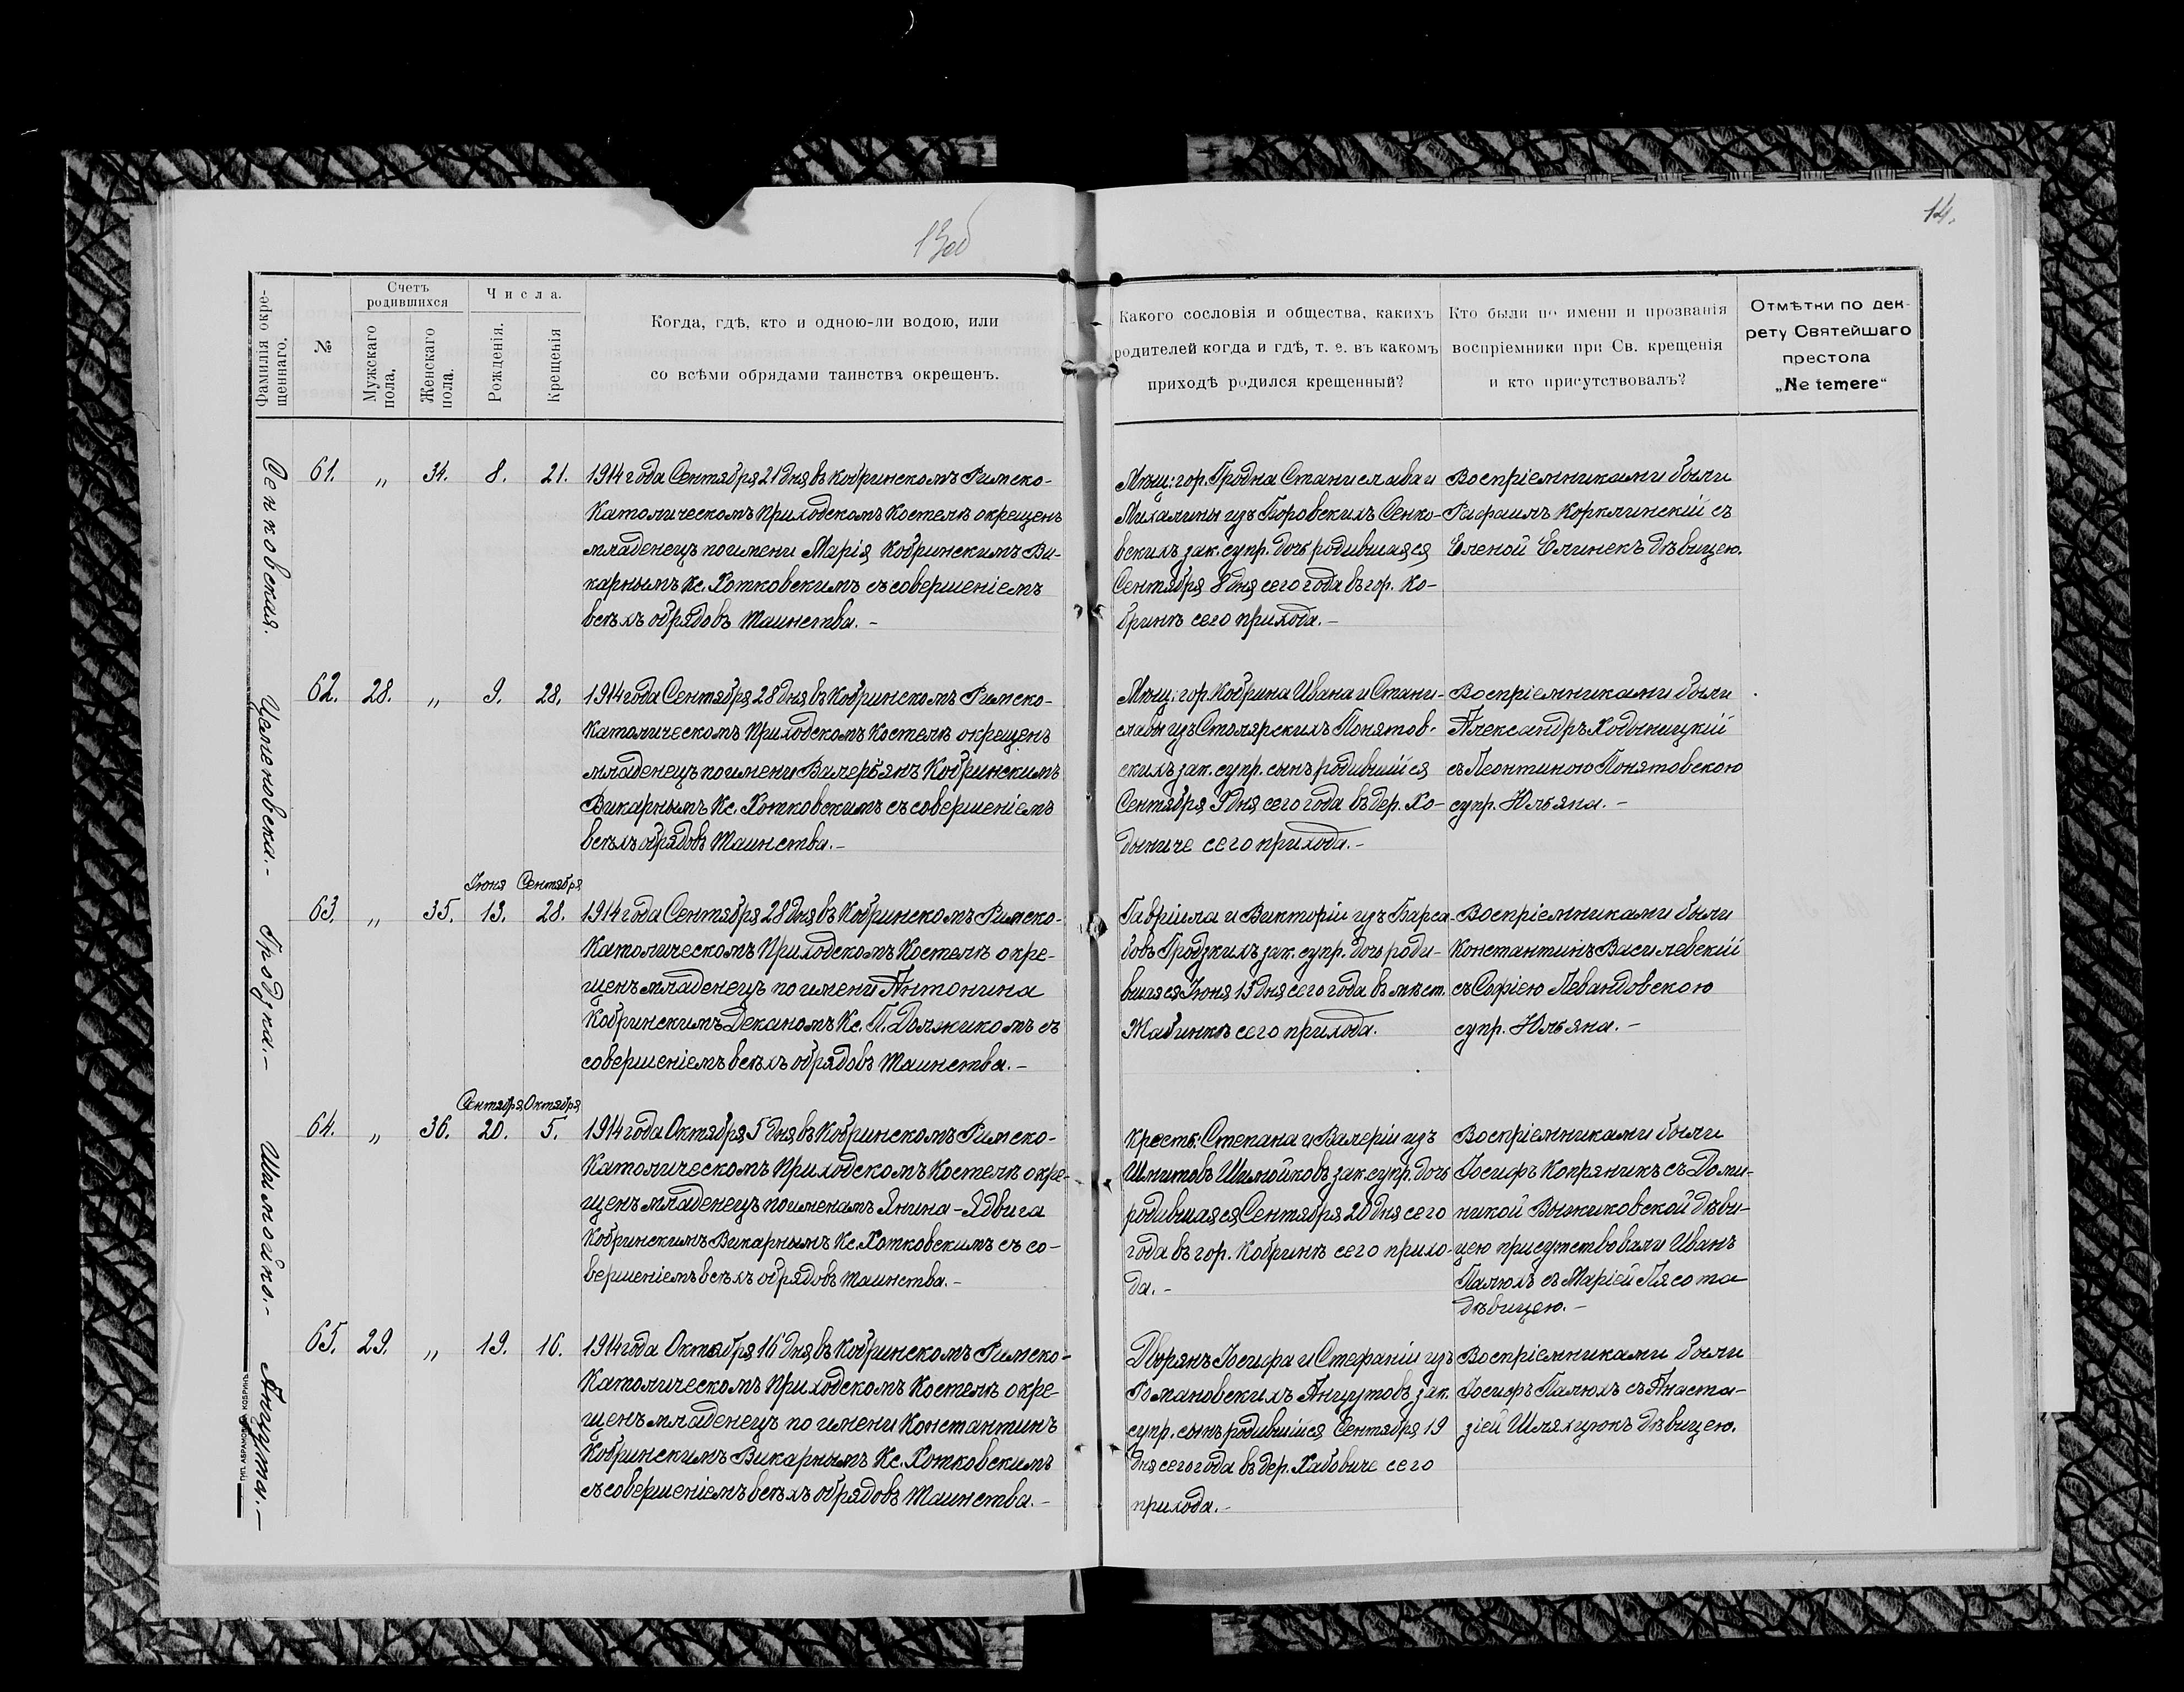 13об
14.
Фамилія окре-
щеннаго.
№
Счетъ
родившихся
Мужскаго
пола.
Женскаго
пола.
Числа.
Рожденія.
Крещенія
Когда, гдѣ, кто и одною-ли водою, или
со всѣми обрядами таинства окрещенъ.
Какого сословія и общества, какихъ
родителей когда и гдѣ, т. е. въ какомъ
приходѣ родился крещенный?
Кто были по имени и прозванія
воспріемники при Св. крещенія
и кто присутствовалъ?
Отмѣтки по дек-
рету Святейшаго
престола
„Ne temere“
Сенковская.
61. „ 34. 8. 21.
1914 года Сентября 21 дня въ Кобринскомъ Римско-
Католическомъ Приходскомъ Костелѣ окрещенъ
младенецъ по имени Марія Кобринскимъ Ви-
карнымъ Кс. Хотковскимъ съ совершеніемъ
всѣхъ обрядовъ Таинства. -
Мѣщ: гор. Гродна Станислава и
Михалины изъ Боровскихъ Сенко-
вскихъ зак. супр. дочь родившаяся
Сентября 8 дня сего года въ гор. Ко-
бринѣ сего прихода. -
Воспріемниками были
Рафаилъ Корклинскій съ
Еленой Елинекъ дѣвицею.
62. 28. „ 9. 28.
1914 года Сентября 28 дня въ Кобринскомъ Римско-
Католическомъ Приходскомъ Костелѣ окрещенъ
младенецъ по имени Валерьянъ Кобринскимъ
Викарнымъ Кс. Хотковскимъ съ совершеніемъ
всѣхъ обрядовъ Таинства. -
Мѣщ: гор. Кобрина Ивана и Стани-
славы изъ Столярскихъ Понятов-
скихъ зак. супр. сынъ родившійся
Сентября 9 дня сего года въ дер. Хо-
дыниче сего прихода. -
Воспріемниками были
Александръ Ходыницкій
съ Леонтиною Понятовскою
супр. Юльяна. -
Гродзка. -
Іюня Сентября
63. „ 35. 13. 28.
1914 года Сентября 28 дня въ Кобринскомъ Римско-
Католическомъ Приходскомъ Костелѣ окре-
щенъ младенецъ по имени Антонина
Кобринскимъ Деканомъ Кс. П. Должикомъ съ
совершеніемъ всѣхъ обрядовъ Таинства. -
Гавріила и Викторіи изъ Барса-
довъ Гродзкихъ зак. супр. дочь роди-
вшаяся Іюня 13 дня сего года въ мѣст.
Жабинкѣ сего прихода.
Воспріемниками были
Константинъ Василевскій
съ Софіею Левандовскою
супр. Юльяна. -
Шимойко. -
Сентября Октября
64. „ 36. 20. 5.
1914 года Октября 5 дня въ Кобринскомъ Римско-
Католическомъ Приходскомъ Костелѣ окре-
щенъ младенецъ по именамъ Янина-Ядвига
Кобринскимъ Викарнымъ Кс. Хотковскимъ съ со-
вершеніемъ всѣхъ обрядовъ Таинства. -
Крестьː Степана и Валеріи изъ
Шмитовъ Шимойковъ зак. супр. дочь
родившаяся Сентября 20 дня сего
года въ гор. Кобринѣ сего прихо-
да. -
Воспріемниками были
Іосифъ Копряникъ съ Доми-
никой Выжиковской дѣви-
цею присутствовали Иванъ
Палюхъ съ Маріей Лясота
дѣвицею. -
Анцута. -
65. 29. „ 19. 16.
1914 года Октября 16 дня въ Кобринскомъ Римско-
Католическомъ Приходскомъ Костелѣ окре-
щенъ младенецъ по имени Константинъ
Кобринскимъ Викарнымъ Кс. Хотковскимъ
съ совершеніемъ всѣхъ обрядовъ Таинства. -
Дворянъ Іосифа и Стефаніи изъ
Романовскихъ Анцутовъ зак.
супр. сынъ родившійся Сентября 19
дня сего года въ дер. Хабовиче сего
прихода. -
Воспріемниками были
Іосифъ Палюхъ съ Анаста-
зіей Шляхцюкъ дѣвицею.